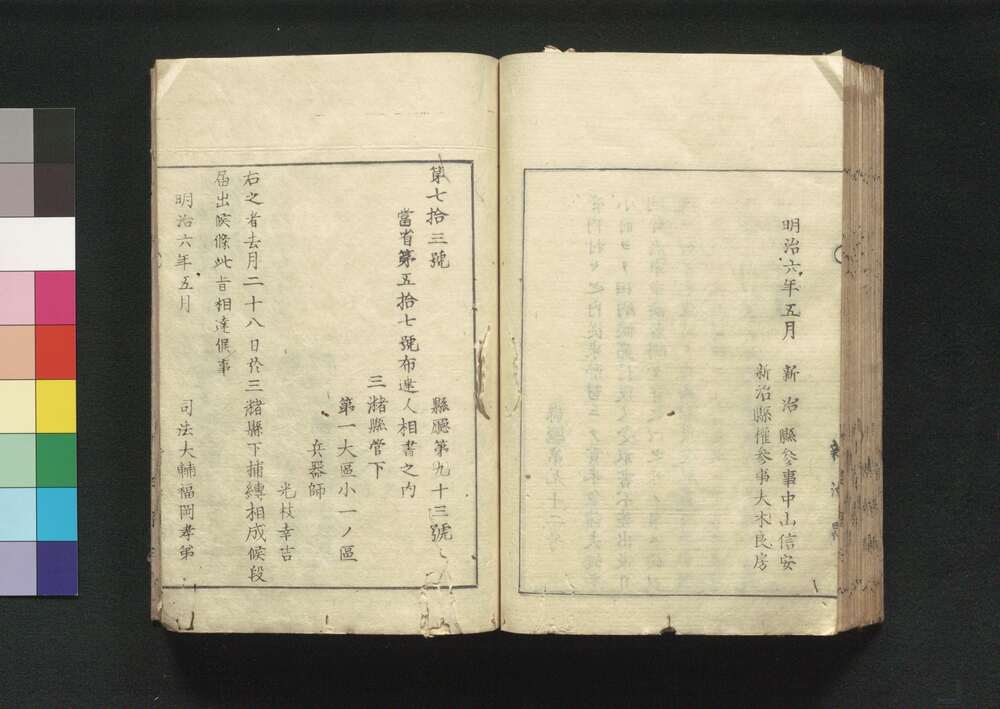 明治六年五月
新治縣參事中山信安
新治縣權參事大木良房
縣廳第九十三號
第七拾三號
當省第五拾七號布達人相書之內
三潴縣管下
第一大區小一ノ區
兵器師
光枝幸吉
右之者去月二十八日於三潴縣下捕縛相成候段
届出候條此旨相達候事
明治六年五月
司法大輔福岡孝弟